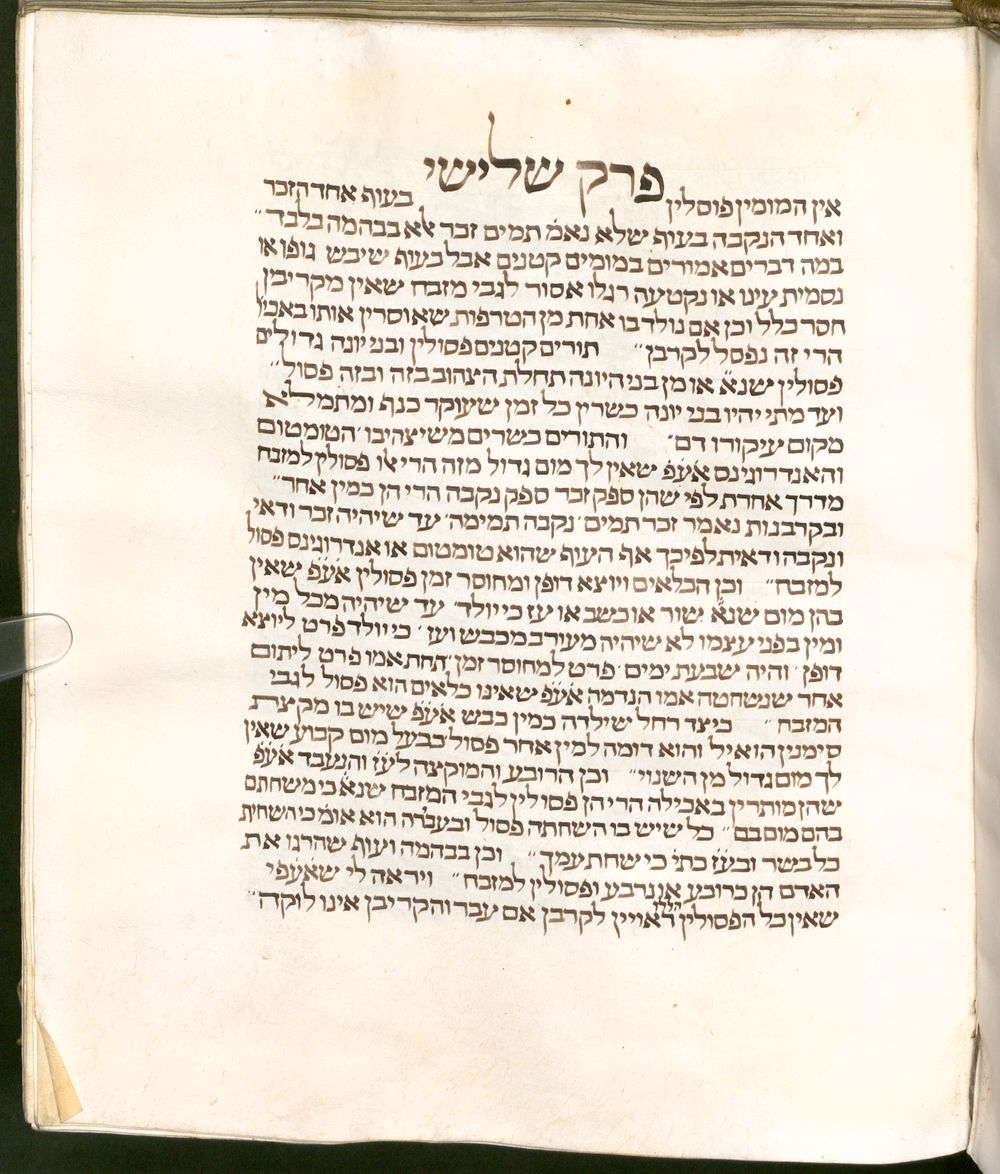 פרק שלישי
אין המומין פוסלין בעוף אחד הזכר
ואחד הנקבה בעוף שלא נאמ׳ תמים זכר אלא בבהמה בלבד״
במה דברים אמורים במומים קטנים אבל בעוף שיבש גופו או
נסמית עינו או נקטעה רגלו אסור לגבי מזבח שאין מקריבין
חסר כלל וכן אם נולד בו אחת מן הטרפות שאוסרין אותו באכיל׳
הרי זה נפסל לקרבן״ תורים קטנים פסולין ובני יונה גדולים
פסולין שנא׳ או מן בני היונה תחלת הצהוב בזה ובזה פסול״
ועד מתי יהיו בני יונה כשרין כל זמן שעוקר כנף ומתמלא
מקום עיקורו דם״ והתורים כשרים משיצהיבו״ הטומטום
והאנדרוגינס אע״פ שאין לך מום גדול מזה הרי אלו פסולין למזבח
מדרך אחרת לפי שהן ספק זכר ספק נקבה הרי הן כמין אחר״
ובקרבנות נאמר זכר תמים׳ נקבה תמימה׳ עד שיהיה זכר ודאי
ונקבה ודאית לפיכך אף העוף שהוא טומטום או אנדרוגינס פסול
למזבח״ וכן הכלאים ויוצא דופן ומחוסר זמן פסולין אע״פ שאין
בהן מום שנא׳ שור או כשב או עז כי יולד׳ עד שיהיה מכל מין
ומין בפני עצמו לא שיהיה מעורב מכבש ועז׳ כי יולד פרט ליוצא
דופן׳ והיה שבעת ימים׳ פרט למחוסר זמן׳ תחת אמו פרט ליתום
אחר שנשחטה אמו הנדמה אע״פ שאינו כלאים הוא פסול לגבי
המזבח״ כיצד רחל שילדה כמין כבש אע״פ שיש בו מקצרת
סימנין הואיל והוא דומה למין אחר פסול כבעל מום קבוע שאין
לך מום גדול מן השנוי״ וכן הרובע והמוקצה לע״ז והנעבד אע״פ
שהן מותרין באכילה הרי הן פסולין לגבי המזבח שנא׳ כי משחתם
בהם מום בם״ כל שיש בו השחתה פסול ובעברה הוא אומ׳ כי השחית
כל בשר ובע״ז כת׳ כי שחת עמך״ וכן בבהמה ועוף שהרגו את
האדם הן כרובע או נרבע ופסולין למזבח״ ויראה לי שאע״פי
שאין כל הפסולין האלו ראויין לקרבן אם עבר והקריבן אינו לוקה״